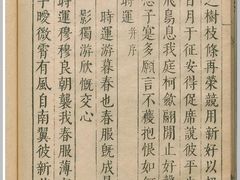 之樹枝條再榮競用新好以招
日月于征安得促席說彼平
飛鳥息我庭柯斂翮閒止好聲
念子寔多願言不獲抱恨如
時運并序
時運游暮春也春服既成景
影獨游欣慨交心
時運穆穆良朝襲我春服薄
宇曖微霄有風自南翼彼新